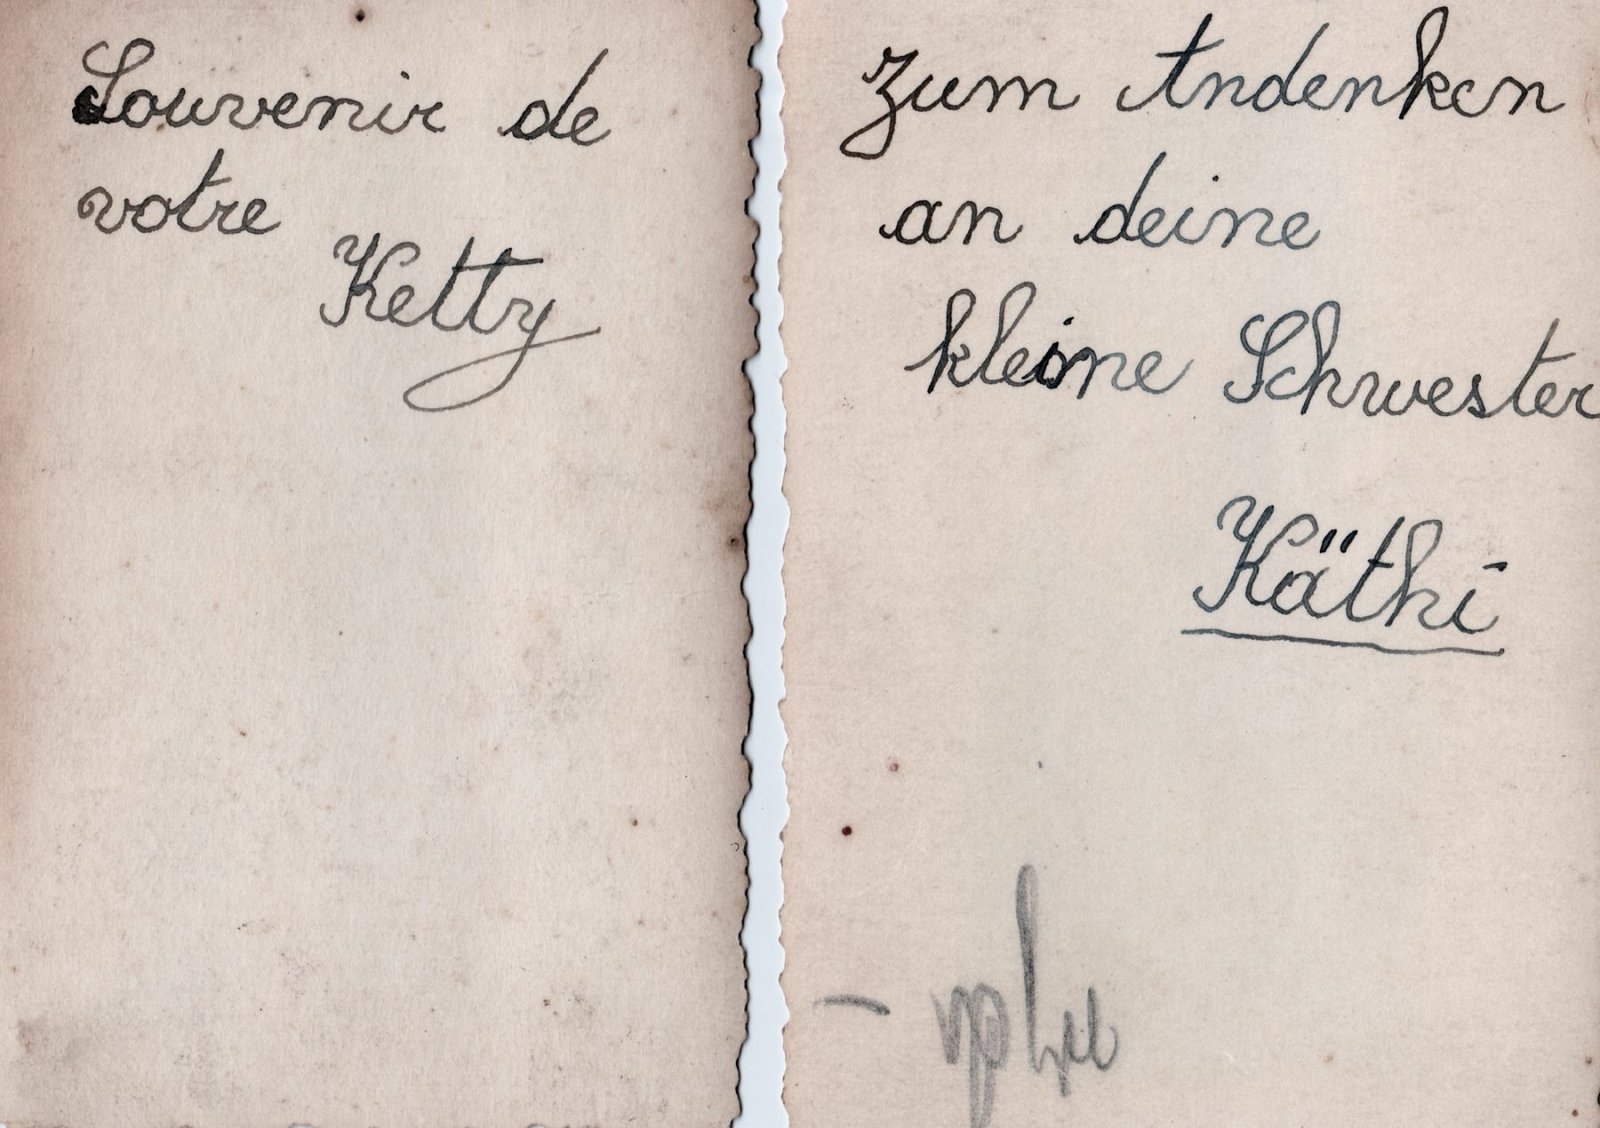 Souvenir de
votre
Ketty
Zum Andenken
an deine
kleine Schwester
Käthi